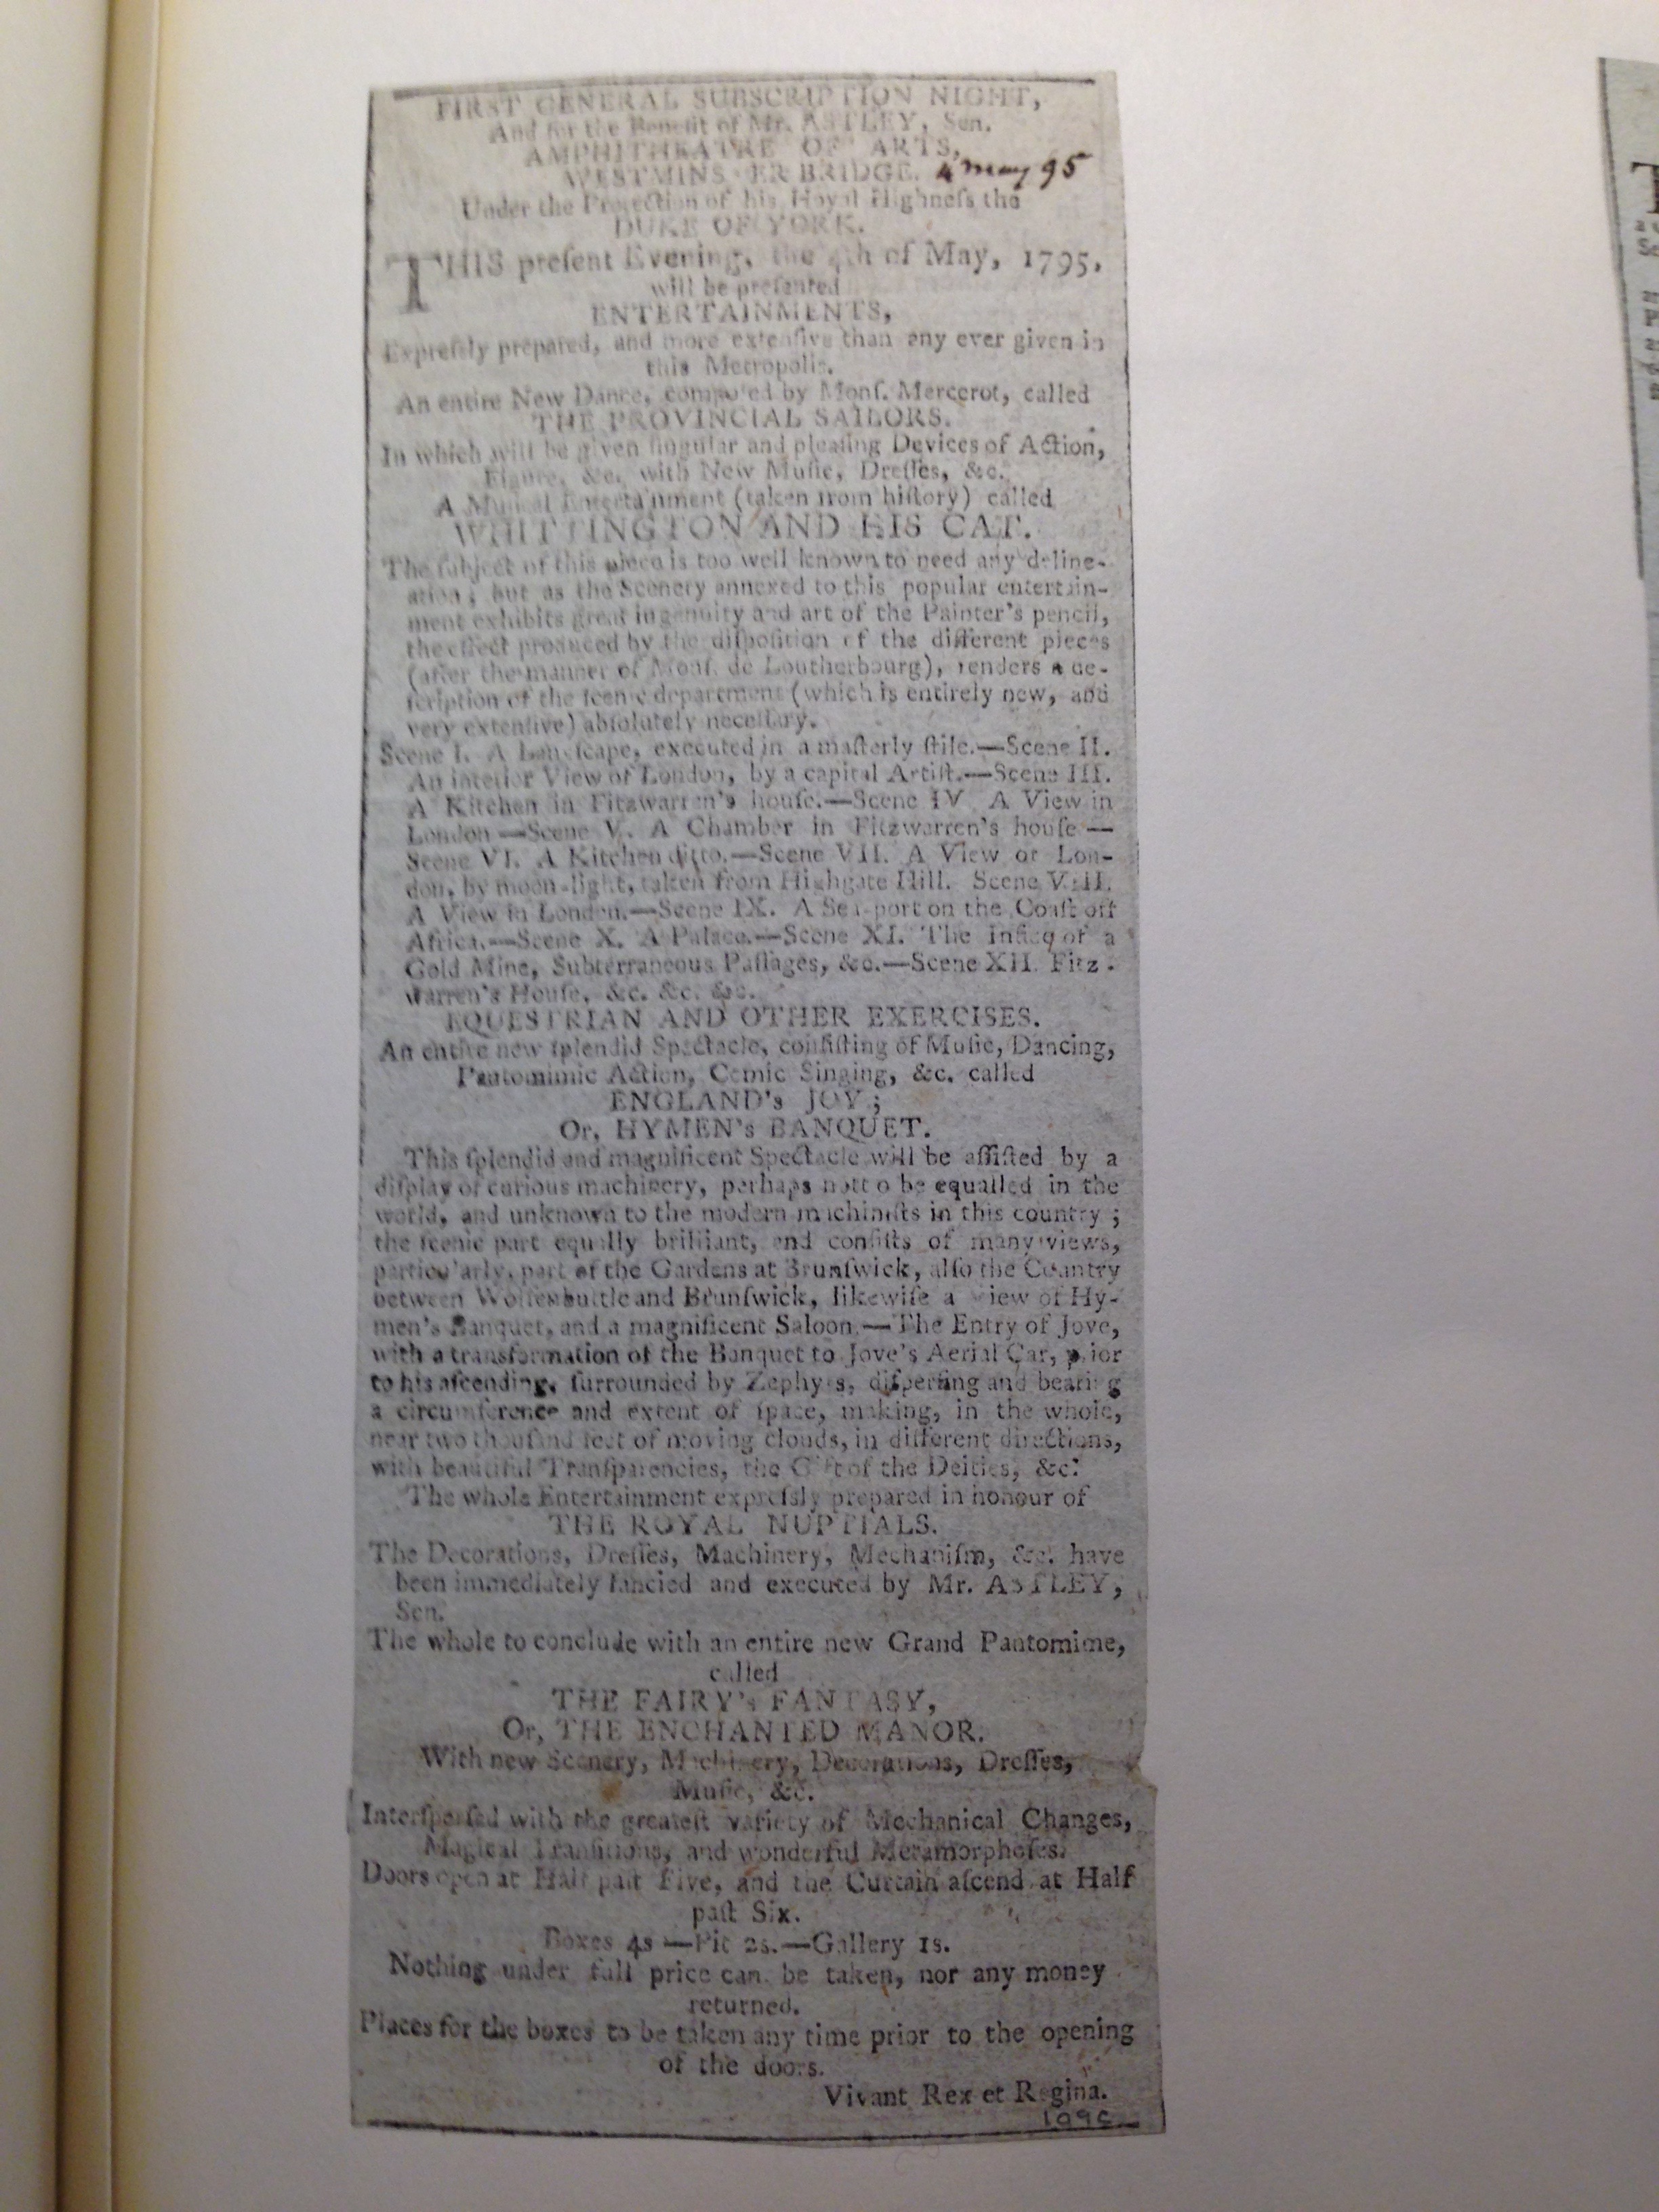 FIRST GENERAL SUBSCRIPTION NIGHT,
And for the Benefit of Mr. ASTLEY, Sen.
AMPHITHEATRE OF ARTS,
WESTMINSTER BRIDGE. 4 May 95
Under the Protection of his Royal Highneſs the
DUKE OF YORK.
THIS preſent Evening, the 4th of May, 1795,
will be preſented
ENTERTAINMENTS,
Expreſsly prepared, and more extenſive than any ever given in
this Metropolis.
An entire New Dance, compoſed by Monſ. Mercerot, called
THE PROVINCIAL SAILORS.
In which will be given ſingular and pleaſing Devices of Action,
Figure, &c. with New Muſic, Dreſſes, &c.
A Muſical Entertainment (taken from hiſtory) called
WHITTINGTON AND HIS CAT.
The ſubject of this piece is too well known to need any deline-
ation; but as the Scenery annexed to this popular entertain-
ment exhibits great ingenuity and art of the Painter's pencil,
the effect produced by the diſpoſition of the different pieces
(after the manner of Monſ. de Loutherbourg), renders a de-
ſcription of the ſcenic department (which is entirely new, and
very extenſive) abſolutely neceſſary.
Scene I. A Landſcape, executed in a maſterly ſtile.—Scene II.
An interior View of London, by a capital Artiſt.—Scene III.
A Kitchen in Fitzwarren's houſe.—Scene IV A View in
London—Scene V. A Chamber in Fitzwarren's houſe—
Scene VI. A Kitchen ditto.—Scene VII. A View of Lon-
don, by moon-light, taken from Highgate Hill. Scene VIII.
A View in London.—Scene IX. A Sea-port on the Coaſt off
Africa.—Scene X. A Palace.—Scene XI. The Inſide of a
Gold Mine, Subterraneous Paſſages, &c.—Scene XII. Fitz-
warren's Houſe, &c. &c. &c.
EQUESTRIAN AND OTHER EXERCISES.
An entire new ſplendid Spectacle, conſiſting of Muſic, Dancing,
Pantomimic Action, Comic Singing, &c. called
ENGLAND's JOY;
Or, HYMEN's BANQUET.
This ſplendid and magnificent Spectacle will be aſſiſted by a
diſplay of curious machinery, perhaps not to be equalled in the
world, and unknown to the modern machiniſts in this country;
the ſcenic part equally brilliant, and conſiſts of many views,
particularly, part of the Gardens at Brunſwick, alſo the Country
between Wolfenbuttle and Brunſwick, likewiſe a View of Hy-
men's Banquet, and a magnificent Saloon.—The Entry of Jove,
with a transformation of the Banquet to Jove's Aerial Car, prior
to his aſcending, ſurrounded by Zephyrs, diſperſing and bearing
a circumference and extent of ſpace, making, in the whole,
near two thouſand feet of moving clouds, in different directions,
with beautiful Tranſparencies, the Gift of the Deities, &c.
The whole Entertainment expreſsly prepared in honour of
THE ROYAL NUPTIALS.
The Decorations, Dreſſes, Machinery, Mechaniſm, &c. have
been immediately fancied and executed by Mr. ASTLEY,
Sen.
The whole to conclude with an entire new Grand Pantomime,
called
THE FAIRY's FANTASY,
Or, THE ENCHANTED MANOR.
With new Scenery, Machinery, Decorations, Dreſſes,
Muſic, &c.
Interſperſed with the greateſt variety of Mechanical Changes,
Magical Tranſitions, and wonderful Metamorphoſes.
Doors open at Half paſt Five, and the Curtain aſcend at Half
paſt Six.
Boxes 4s—Pit 2s.—Gallery 1s.
Nothing under full price can be taken, nor any money
returned.
Places for the boxes to be taken any time prior to the opening
of the doors.
Vivant Rex et Regina.